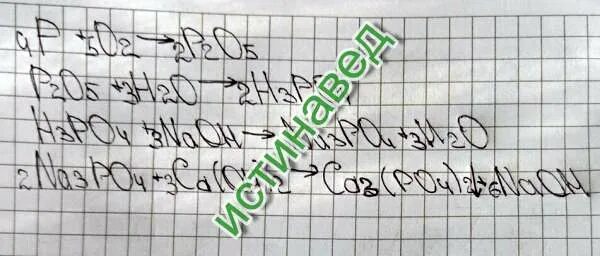 4P + 5O2 → 2P2O5
P2O5 + 3H2O → 2H3P
H3PO4 + 3NaOH → Na3PO4 + 3H2O
2Na3PO4 + 3Ca(OH)2 → Ca3(PO4)2 + 6NaOH
истинавед